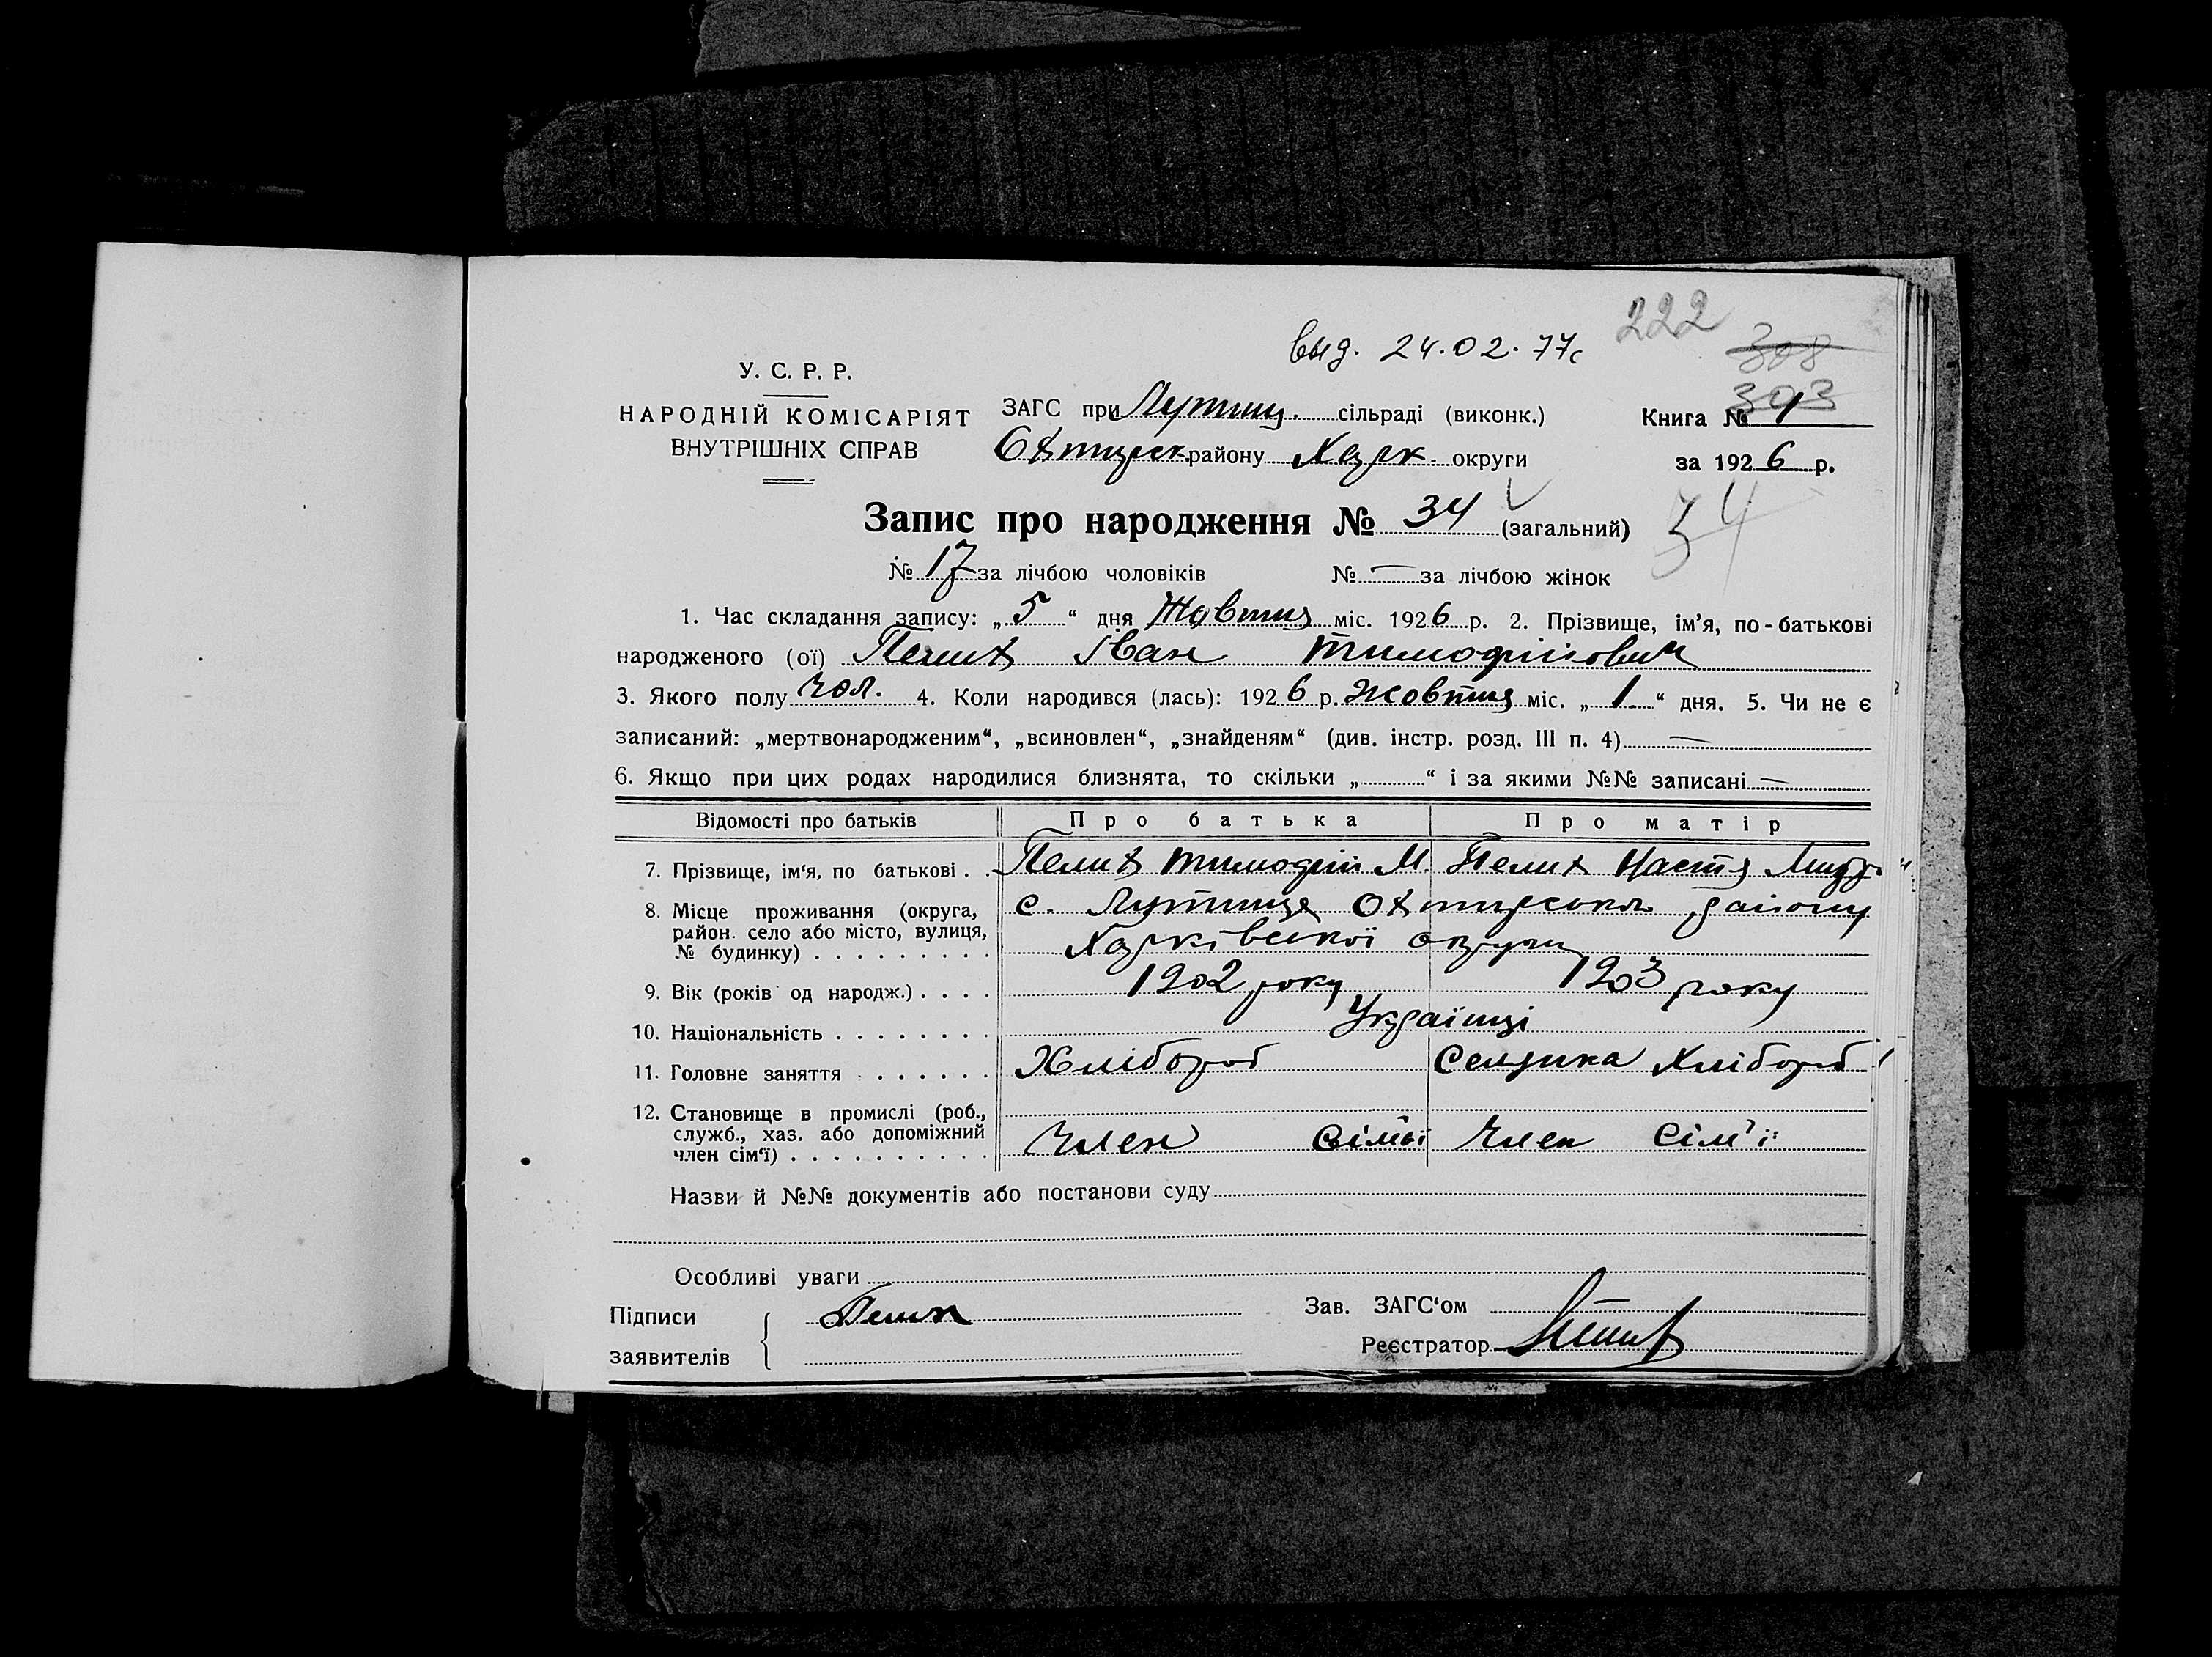 222
выд. 24.02.77г
308
303
У. С. Р. Р.
НАРОДНІЙ КОМІСАРІЯТ
ВНУТРІШНІХ СПРАВ
ЗАГС при Лутищ. сільраді (виконк.)
Охтирськ. району Харк. округи
Книга № 1
за 1926 р.
Запис про народження № 34 (загальний)
34
№ 17 за лічбою чоловіків № — за лічбою жінок
1. Час складання запису: „ 5 “ дня Жовтня міс. 1926 р. 2. Прізвище, ім’я, по-батькові
народженого (ої) Пелих Іван Тимофійович
3. Якого полу чол. 4. Коли народився (лась): 1926 р. жовтня міс. „ 1. “ дня. 5. Чи не є
записаний: „мертвонародженим“, „всиновлен“, „знайденям“ (див. інстр. розд. III п. 4) —
6. Якщо при цих родах народилися близнята, то скільки „ “ і за якими №№ записані —
Відомості про батьків Про батька Про матір
7. Прізвище, ім‘я, по батькові . . Пелих Тимофій М. Пелих Настя
8. Місце проживання (округа, район. село або місто, вулиця, № будинку) . . . . . . . . . с. Лутище Охтирськ. району
Харківської округи
9. Вік (років од народж.) . . . . 1902 року 1903 року
10. Національність . . . . . . . . Українці
11. Головне заняття . . . . . . Хлібороб Селянка Хлібороб
12. Становище в промислі (роб., служб., хаз. або допоміжний член сім‘ї) . . . . . . . . . . Член сімьї Член сім’ї
Назви й №№ документів або постанови суду
Особливі уваги
Підписи
заявителів
Пелих
Зав. ЗАГС‘ом
Реєстратор